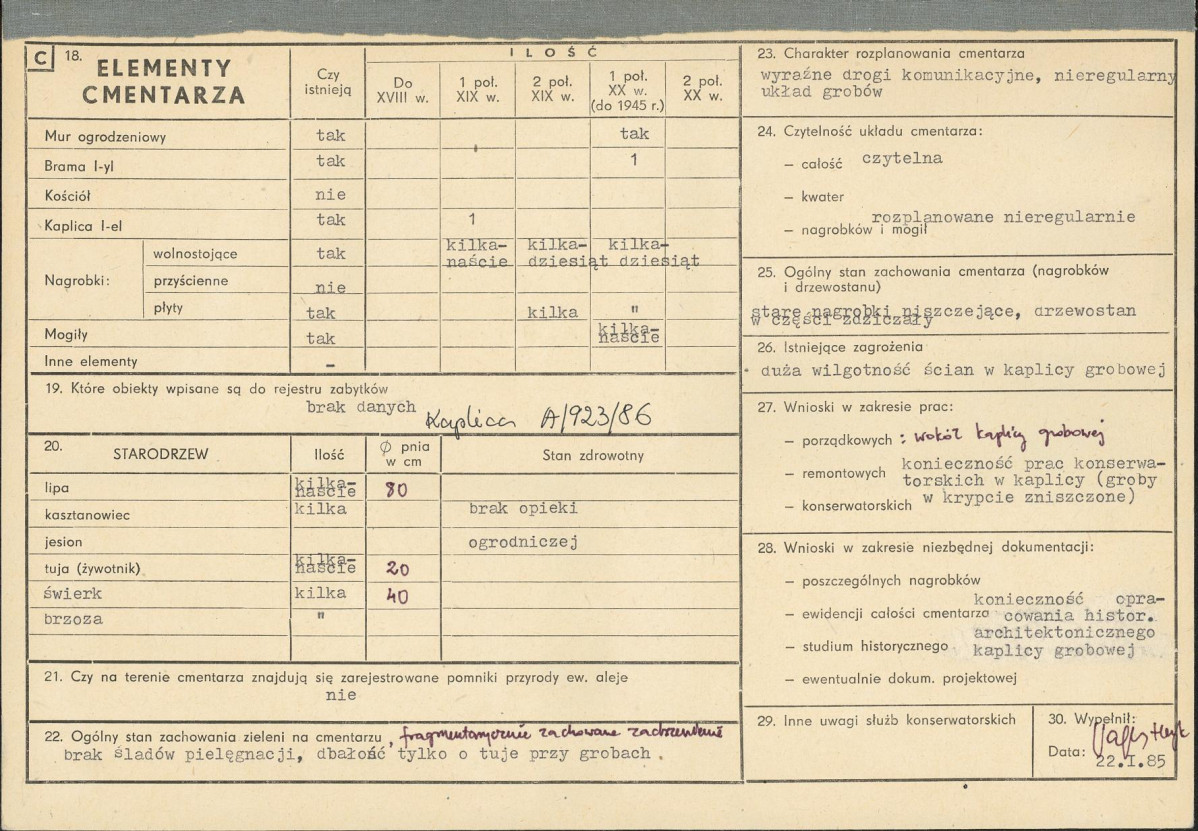 C 18. ELEMENTY CMENTARZA
Czy istnieją
ILOŚĆ
Do XVIII w.
1 poł. XIX w.
2 poł. XIX w.
1 poł. XX w. (do 1945 r.)
2 poł. XX w.
Mur ogrodzeniowy tak tak
Brama I-yl tak 1
Kościół nie
Kaplica I-el tak 1
Nagrobki:
wolnostojące tak kilka-naście kilka-dziesiąt kilka-dziesiąt
przyścienne nie
płyty tak kilka "
Mogiły tak kilka-naście
Inne elementy –
19. Które obiekty wpisane są do rejestru zabytków
brak danych Kaplica A/923/86
20. STARODRZEW Ilość Ø pnia w cm Stan zdrowotny
lipa kilka-naście 80
kasztanowiec kilka brak opieki
jesion ogrodniczej
tuja (żywotnik) kilka-naście 20
świerk kilka 40
brzoza "
21. Czy na terenie cmentarza znajdują się zarejestrowane pomniki przyrody ew. aleje
nie
22. Ogólny stan zachowania zieleni na cmentarzu, fragmentarycznie zachowane
brak śladów pielęgnacji, dbałość tylko o tuje przy grobach.
23. Charakter rozplanowania cmentarza
wyraźne drogi komunikacyjne, nieregularny
układ grobów
24. Czytelność układu cmentarza:
– całość czytelna
– kwater
rozplanowane nieregularnie
– nagrobków i mogił
25. Ogólny stan zachowania cmentarza (nagrobków
i drzewostanu)
stare nagrobki niszczejące, drzewostan
w części zdziczały
26. Istniejące zagrożenia
duża wilgotność ścian w kaplicy grobowej
27. Wnioski w zakresie prac:
– porządkowych : wokół kaplicy grobowej
– remontowych konieczność prac konserwa-
torskich w kaplicy (groby
– konserwatorskich w krypcie zniszczone)
28. Wnioski w zakresie niezbędnej dokumentacji:
– poszczególnych nagrobków
konieczność opra-
– ewidencji całości cmentarza cowania histor.
architektonicznego
– studium historycznego kaplicy grobowej
– ewentualnie dokum. projektowej
29. Inne uwagi służb konserwatorskich
30. Wypełnił:
Data: 22.I.85